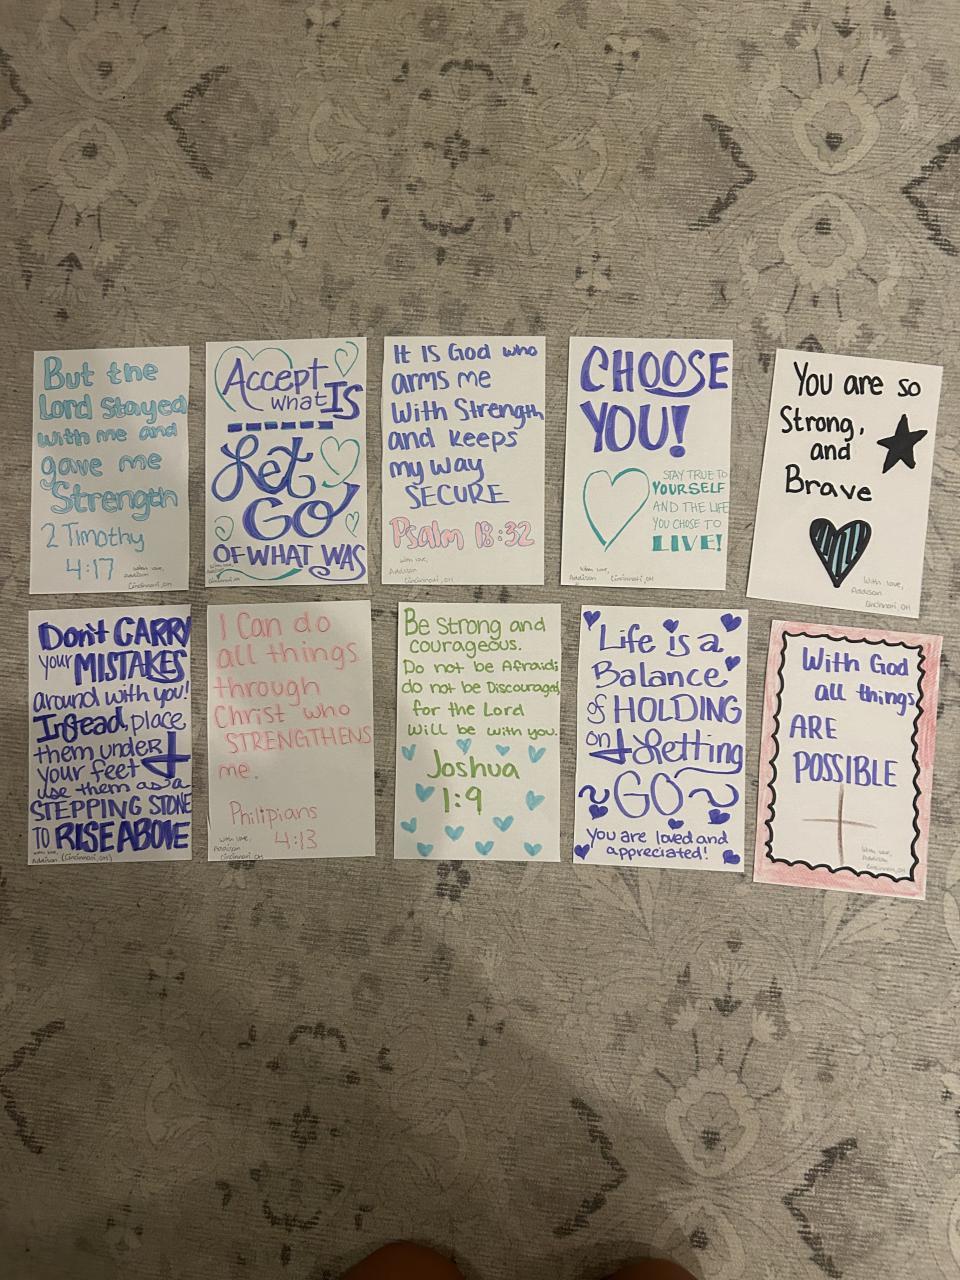 But the
Lord Stayed
with me and
gave me
Strength
2 Timothy
4:17
With love,
Addison
Cincinnati, OH
Accept
what IS
Let
GO
OF WHAT WAS
With love,
Addison
Cincinnati, OH
It IS God who
arms me
With Strength
and keeps
my way
SECURE
Psalm 18:32
With love,
Addison
Cincinnati, OH
CHOOSE
YOU!
STAY TRUE TO
YOURSELF
AND THE LIFE
YOU CHOSE TO
LIVE!
With love,
Addison
Cincinnati, OH
You are so
Strong,
and
Brave
With love,
Addison
Cincinnati, OH
Don't CARRY
your MISTAKES
around with you!
Instead, place
them under
your feet +
use them as a
STEPPING STONE
TO RISE ABOVE
With love,
Addison (Cincinnati, OH)
I Can do
all things
through
Christ who
STRENGTHENS
me.
Philipians
4:13
With love,
Addison
Cincinnati, OH
Be Strong and
courageous.
Do not be Afraid;
do not be Discouraged,
for the Lord
will be with you.
Joshua
1:9
Life is a
Balance
of HOLDING
on + Letting
~GO~
You are loved and
appreciated!
With God
all things
ARE
POSSIBLE
With love,
Addison
Cincinnati, OH